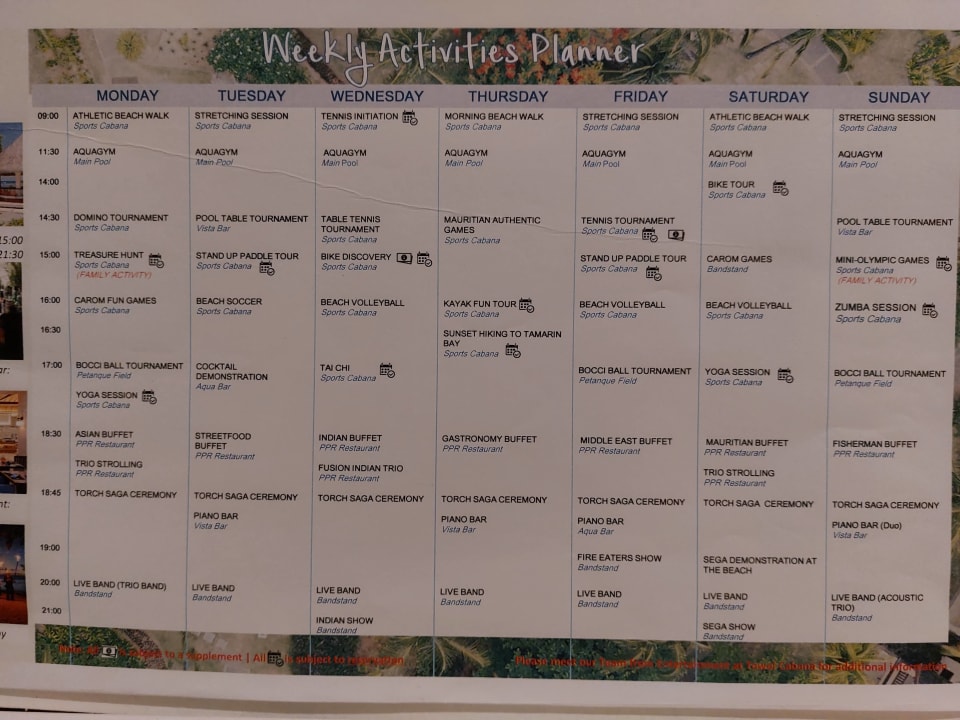 Weekly Activities Planner
MONDAY TUESDAY WEDNESDAY THURSDAY FRIDAY SATURDAY SUNDAY
09:00
ATHLETIC BEACH WALK
Sports Cabana
STRETCHING SESSION
Sports Cabana
TENNIS INITIATION
Sports Cabana
MORNING BEACH WALK
Sports Cabana
STRETCHING SESSION
Sports Cabana
ATHLETIC BEACH WALK
Sports Cabana
STRETCHING SESSION
Sports Cabana
11:30
AQUAGYM
Main Pool
AQUAGYM
Main Pool
AQUAGYM
Main Pool
AQUAGYM
Main Pool
AQUAGYM
Main Pool
AQUAGYM
Main Pool
AQUAGYM
Main Pool
14:00
BIKE TOUR
Sports Cabana
14:30
DOMINO TOURNAMENT
Sports Cabana
POOL TABLE TOURNAMENT
Vista Bar
TABLE TENNIS
TOURNAMENT
Sports Cabana
MAURITIAN AUTHENTIC
GAMES
Sports Cabana
TENNIS TOURNAMENT
Sports Cabana
POOL TABLE TOURNAMENT
Vista Bar
15:00
21:30
15:00
TREASURE HUNT
Sports Cabana
(FAMILY ACTIVITY)
STAND UP PADDLE TOUR
Sports Cabana
BIKE DISCOVERY
Sports Cabana
STAND UP PADDLE TOUR
Sports Cabana
CAROM GAMES
Bandstand
MINI-OLYMPIC GAMES
Sports Cabana
(FAMILY ACTIVITY)
16:00
CAROM FUN GAMES
Sports Cabana
BEACH SOCCER
Sports Cabana
BEACH VOLLEYBALL
Sports Cabana
KAYAK FUN TOUR
Sports Cabana
BEACH VOLLEYBALL
Sports Cabana
BEACH VOLLEYBALL
Sports Cabana
ZUMBA SESSION
Sports Cabana
16:30
SUNSET HIKING TO TAMARIN
BAY
Sports Cabana
17:00
BOCCI BALL TOURNAMENT
Petanque Field
YOGA SESSION
Sports Cabana
COCKTAIL
DEMONSTRATION
Aqua Bar
TAI CHI
Sports Cabana
BOCCI BALL TOURNAMENT
Petanque Field
YOGA SESSION
Sports Cabana
BOCCI BALL TOURNAMENT
Petanque Field
18:30
ASIAN BUFFET
PPR Restaurant
TRIO STROLLING
PPR Restaurant
STREETFOOD
BUFFET
PPR Restaurant
INDIAN BUFFET
PPR Restaurant
FUSION INDIAN TRIO
PPR Restaurant
GASTRONOMY BUFFET
PPR Restaurant
MIDDLE EAST BUFFET
PPR Restaurant
MAURITIAN BUFFET
PPR Restaurant
TRIO STROLLING
PPR Restaurant
FISHERMAN BUFFET
PPR Restaurant
18:45
TORCH SAGA CEREMONY
TORCH SAGA CEREMONY
PIANO BAR
Vista Bar
TORCH SAGA CEREMONY
TORCH SAGA CEREMONY
PIANO BAR
Vista Bar
TORCH SAGA CEREMONY
PIANO BAR
Aqua Bar
TORCH SAGA CEREMONY
TORCH SAGA CEREMONY
PIANO BAR (Duo)
Vista Bar
19:00
FIRE EATERS SHOW
Bandstand
SEGA DEMONSTRATION AT
THE BEACH
20:00
LIVE BAND (TRIO BAND)
Bandstand
LIVE BAND
Bandstand
LIVE BAND
Bandstand
LIVE BAND
Bandstand
LIVE BAND
Bandstand
LIVE BAND
Bandstand
LIVE BAND (ACOUSTIC
TRIO)
Bandstand
21:00
INDIAN SHOW
Bandstand
SEGA SHOW
Bandstand
Note: All is subject to a supplement | All is subject to reservation
Please meet our Team at Cabana for additional information